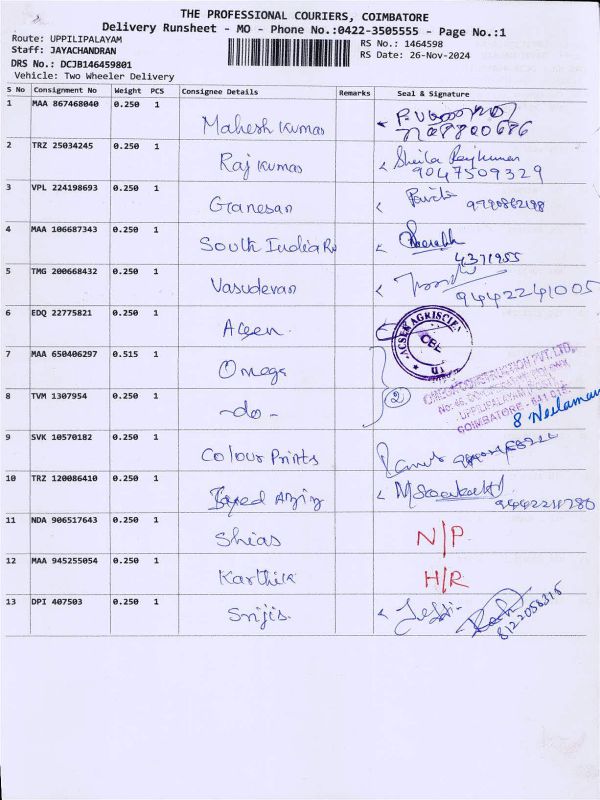 THE PROFESSIONAL COURIERS, COIMBATORE
Delivery Runsheet - MO - Phone No.:0422-3505555 - Page No.:1
Route: UPPILIPALAYAM
RS No.: 1464598
Staff: JAYACHANDRAN
RS Date: 26-Nov-2024
DRS No.: DCJB146459801
Vehicle: Two Wheeler Delivery
S No Consignment No Weight PCS Consignee Details Remarks Seal & Signature
1 MAA 867468040 0.250 1 Mahesh Kumar
2 TRZ 25034245 0.250 1 Raj Kumar Sheila Rajkumar
9047509329
3 VPL 224198693 0.250 1 Ganesan 9790862198
4 MAA 106687343 0.250 1 South India
4371955
5 TMG 200668432 0.250 1 Vasudevan
9442241005
6 EDQ 22775821 0.250 1 ACSEN AGRISCIE
CBE
7 MAA 650406297 0.515 1 Omega
CONSTRUCTION PVT. LTD.,
UPPILIPALAYAM
COIMBATORE - 641 015
8 TVM 1307954 0.250 1 -do- 2
8 Neelaman
9 SVK 10570182 0.250 1 Colour Prints
10 TRZ 120086410 0.250 1
11 NDA 906517643 0.250 1 Shias N/P
12 MAA 945255054 0.250 1 Karthik H/R
13 DPI 407503 0.250 1 Srijis
8122056315